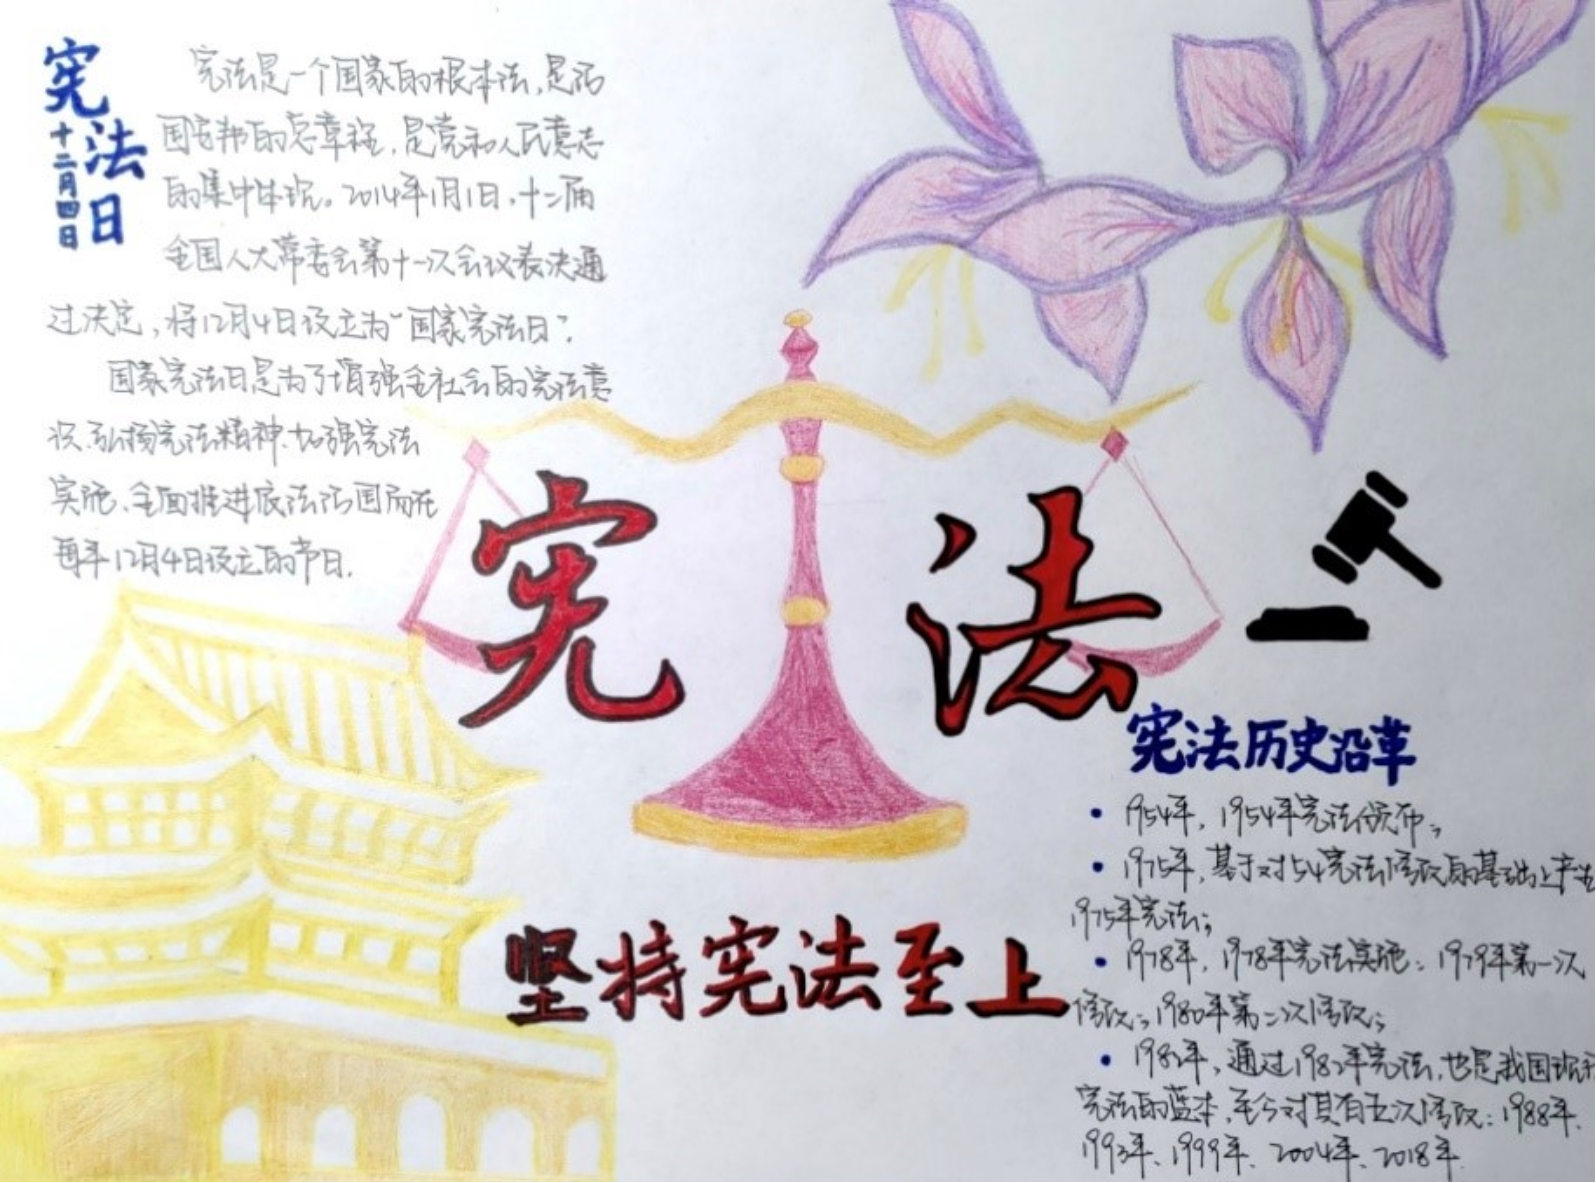 宪法日
十二月四日
宪法是一个国家的根本法,是治
国安邦的总章程,是党和人民意志
的集中体现。2014年11月1日,十二届
全国人大常委会第十一次会议表决通
过决定,将12月4日设立为“国家宪法日”.
国家宪法日是为了增强全社会的宪法意
识、弘扬宪法精神、加强宪法
实施、全面推进依法治国而在
每年12月4日设立的节日.
宪法
坚持宪法至上
宪法历史沿革
• 1954年,1954年宪法颁布;
• 1975年,基于对54宪法修改的基础上产生
1975年宪法;
• 1978年,1978年宪法实施;1979年第一次
修改;1980年第二次修改;
• 1982年,通过1982年宪法,也是我国现行
宪法的蓝本,至今对其有五次修改:1988年、
1993年、1999年、2004年、2018年